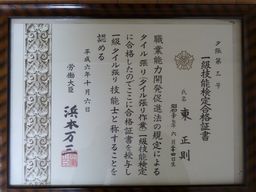 タ張第三号
一級技能検定合格証書
氏名 東正則
昭和三十三年六月二十四日生
職業能力開発促進法の規定による
タイル張り(タイル張り作業)一級技能検定
に合格したのでここに合格証書を授与し
一級タイル張り技能士と称することを
認める
平成六年十月六日
労働大臣 浜本万三